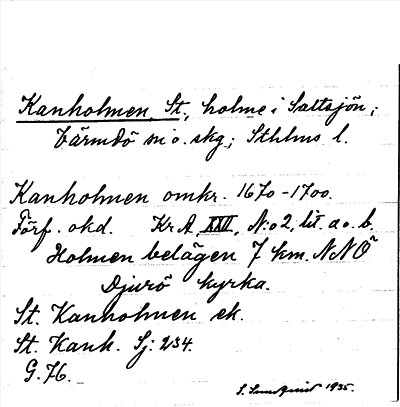 Kanholmen, St., holme i Saltsjön;
Värmdö sn o. skg; Sthlms l.
Kanholmen omkr. 1670-1700.
Förf. okd. Kr A, XXVI, N:o 2, lit. a o. b.
Holmen belägen 7 km. NNÖ
Djurö kyrka.
St. Kanholmen ek.
St. Kanh. Sj: 234.
G. 76.
S. Sundqvist 1935.